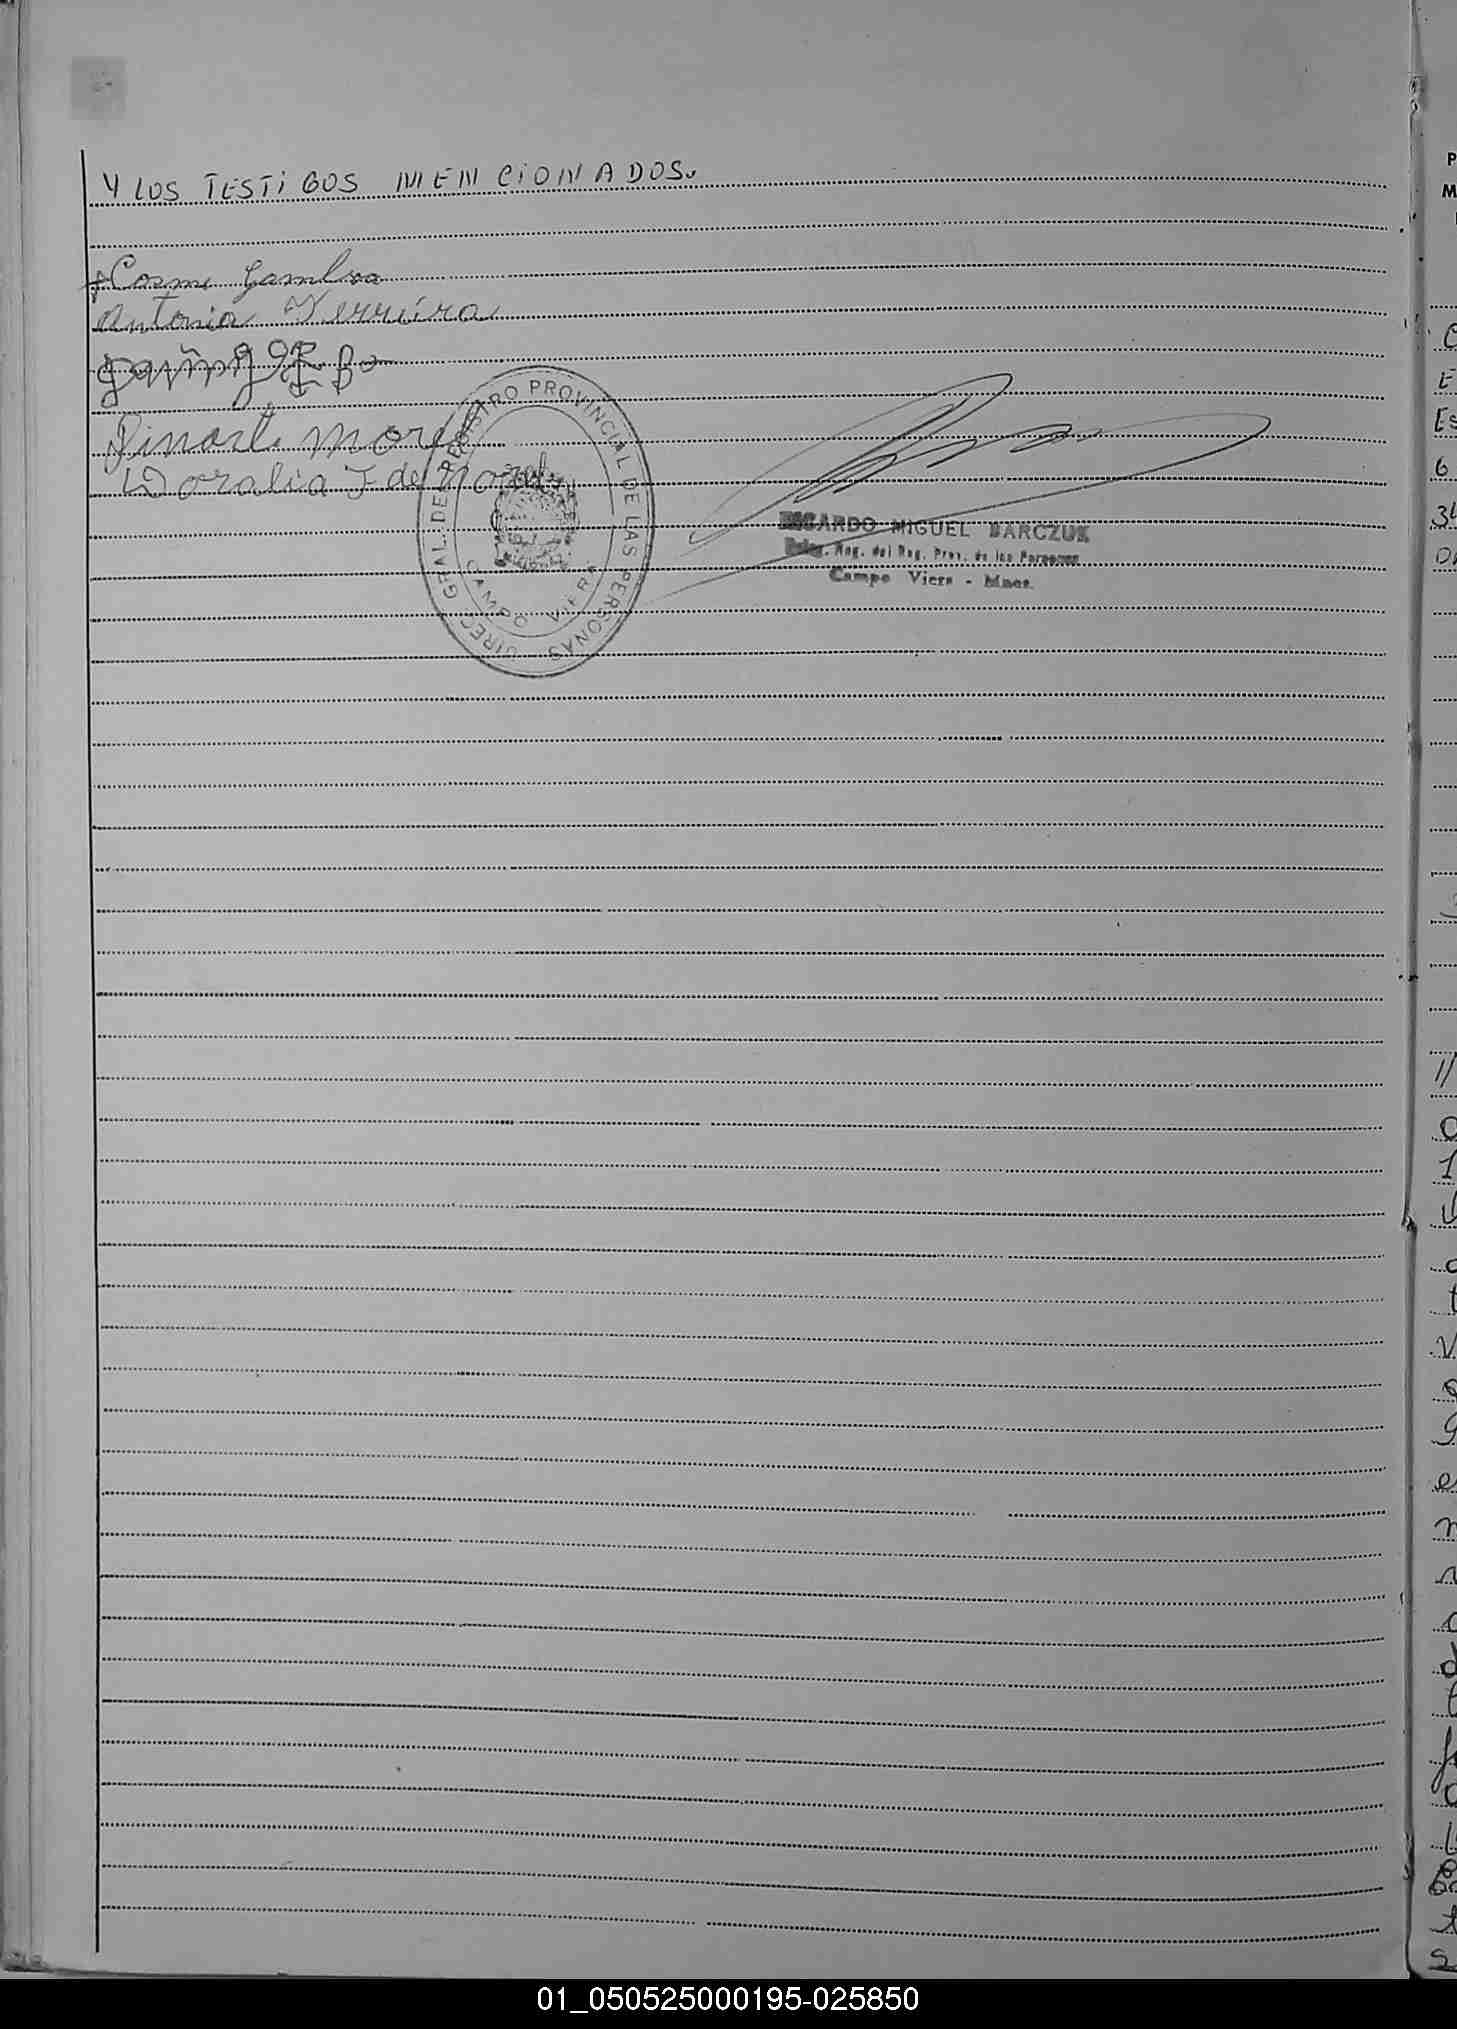 Y LOS TESTIGOS MENCIONADOS.
Cosme Gamboa
Antonia Ferreira
Dinarte Morel
Doralia F de Morel
DIREC. GRAL. DEL REGISTRO PROVINCIAL DE LAS PERSONAS
CAMPO VIERA
RICARDO MIGUEL BARCZUK
Deleg. Reg. del Reg. Prov. de las Personas
Campo Viera - Mnes.
01_050525000195-025850